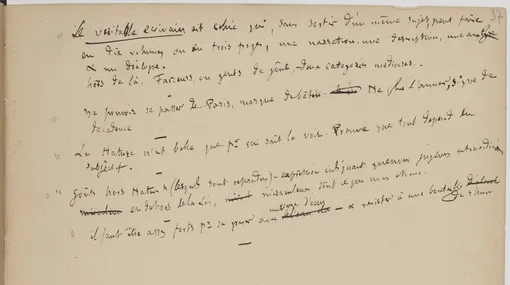 37
Le véritable écrivain est celui qui, sans sortir d'un même sujet, peut faire
en dix volumes ou en trois pages, une narration, une description, une analyse
& un dialogue.
hors de là, Farceurs ou gens de goût, deux catégories médiocres.
ne pouvoir se passer de Paris, marque de bêtise. Ne plus l'aimer, signe de
décadence
La Nature n'est belle que pr qui sait la voir. Prouve que tout dépend du
subject.
Goûts hors Nature (lesquels sont répandus) – expression indiquant qu'on juge
en dehors de la loi, tout ce que nous
il faut être assez fort pr se avec & résister à une